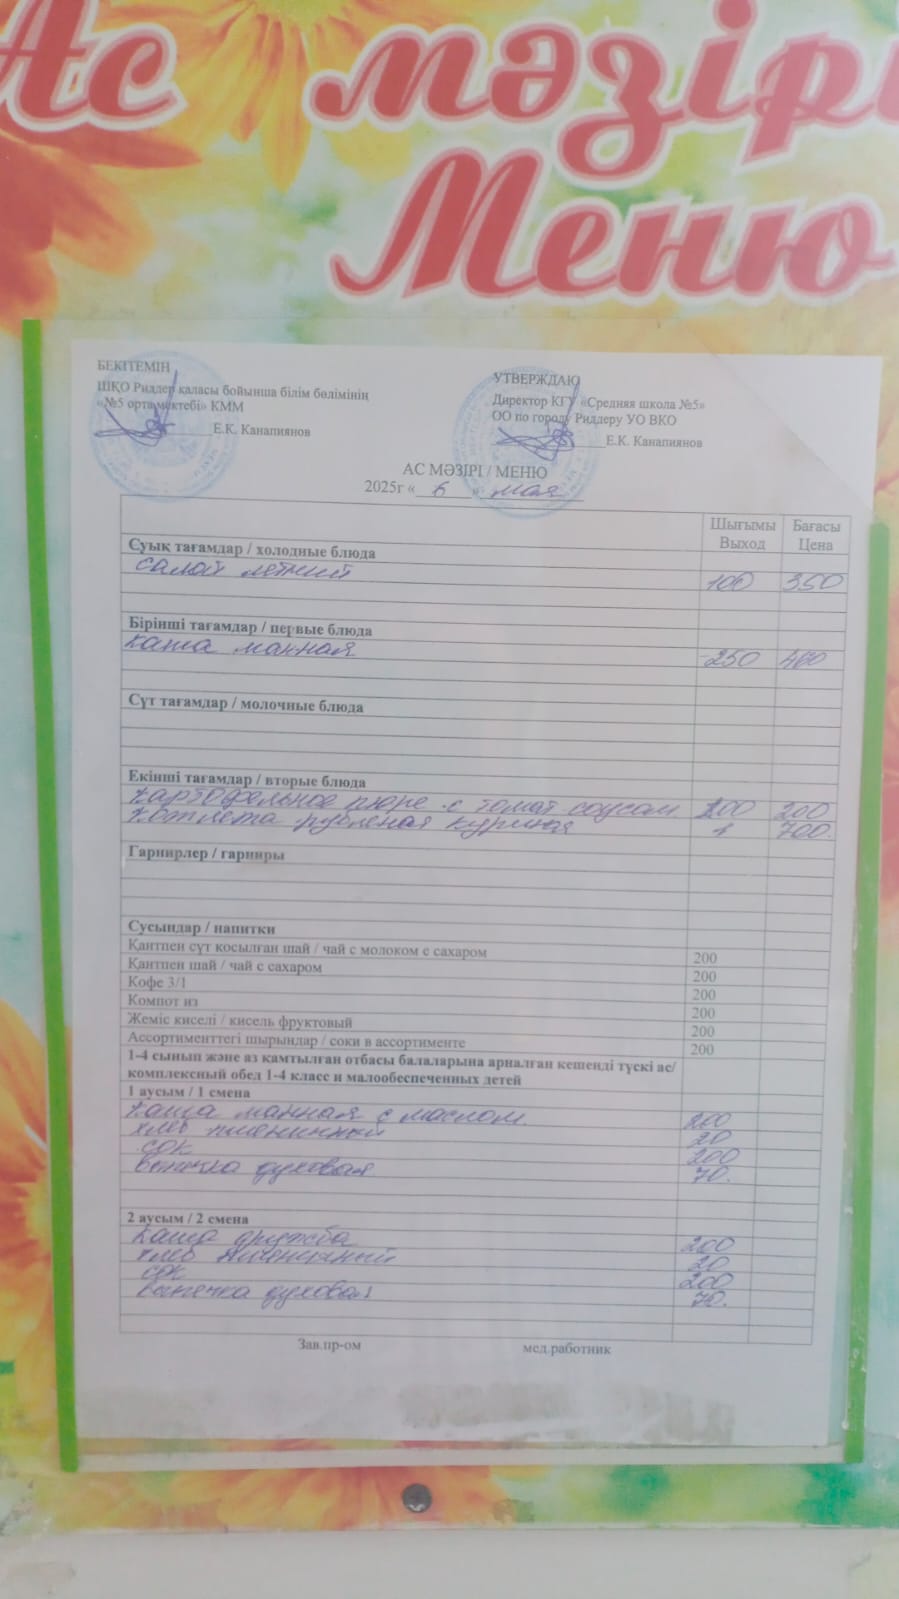 Ас мәзірі
Меню
БЕКІТЕМІН
ШҚО Риддер қаласы бойынша білім бөлімінің
«№5 орта мектебі» КММ
Е.К. Канапиянов
УТВЕРЖДАЮ
Директор КГУ «Средняя школа №5»
ОО по городу Риддеру УО ВКО
Е.К. Канапиянов
АС МӘЗІРІ / МЕНЮ
2025г « 6 » мая
Шығымы Бағасы
Выход Цена
Суық тағамдар / холодные блюда
салат летний 100 350
Бірінші тағамдар / первые блюда
каша манная 250 460
Сүт тағамдар / молочные блюда
Екінші тағамдар / вторые блюда
картофельное пюре с томат соусом 200 200
котлета рубленая куриная 1 700
Гарнирлер / гарниры
Сусындар / напитки
Қантпен сүт қосылған шай / чай с молоком с сахаром 200
Қантпен шай / чай с сахаром 200
Кофе 3/1 200
Компот из 200
Жеміс киселі / кисель фруктовый 200
Ассортименттегі шырындар / соки в ассортименте 200
1-4 сынып және аз қамтылған отбасы балаларына арналған кешенді түскі ас/
комплексный обед 1-4 класс и малообеспеченных детей
1 аусым / 1 смена
каша манная с маслом 200
хлеб пшеничный 20
сок 200
выпечка духовая 70.
2 аусым / 2 смена
каша дружба 200
хлеб пшеничный 20
сок 200
выпечка духовая 70.
Зав.пр-ом мед.работник